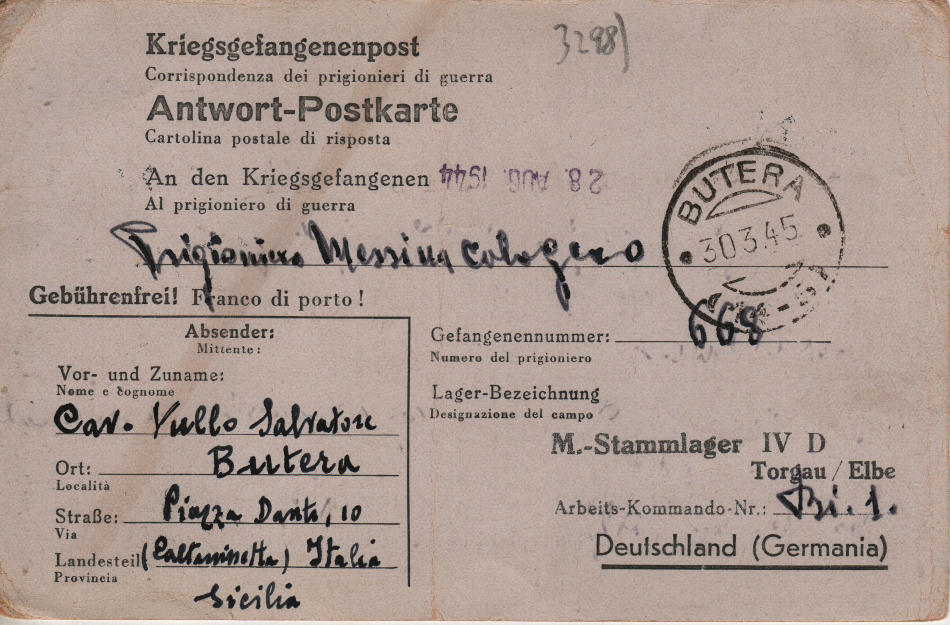 Kriegsgefangenenpost
3298)
Corrispondenza dei prigionieri di guerra
Antwort-Postkarte
Cartolina postale di risposta
An den Kriegsgefangenen
28. AUG. 1944
Al prigioniero di guerra
BUTERA
30.3.45
Prigioniero Messina Calogero
Gebührenfrei! Franco di porto!
Absender:
Mittente:
Vor- und Zuname:
Nome e cognome
Cav. Vullo Salvatore
Ort: Butera
Località
Straße: Piazza Dante, 10
Via
Landesteil (Caltanissetta) Italia
Provincia
Sicilia
Gefangenennummer: 668
Numero del prigioniero
Lager-Bezeichnung
Designazione del campo
M.-Stammlager IV D
Torgau/Elbe
Arbeits-Kommando-Nr.: Bi. 1.
Deutschland (Germania)